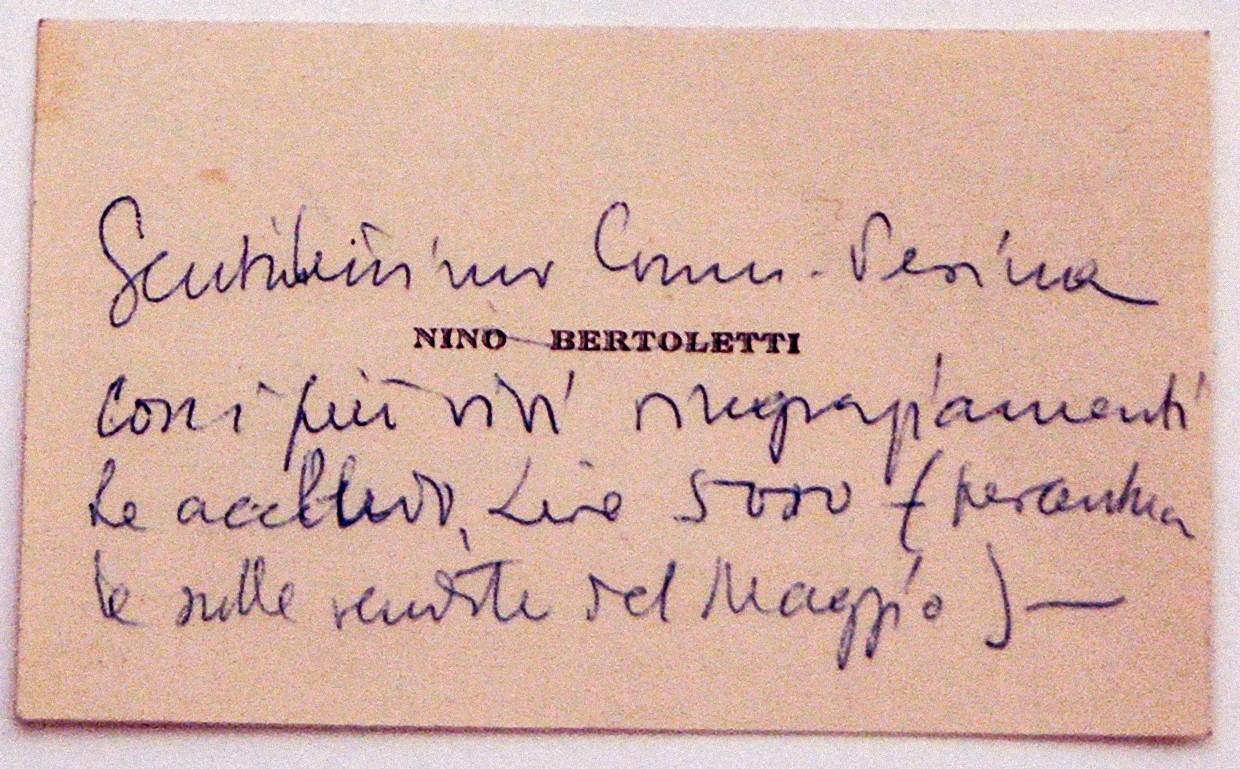 Gentilissimo Comm. Pesina
NINO BERTOLETTI
con i più vivi ringraziamenti
Le accludo, Lire 5000 (percentua
le sulle vendite del Maggio) —